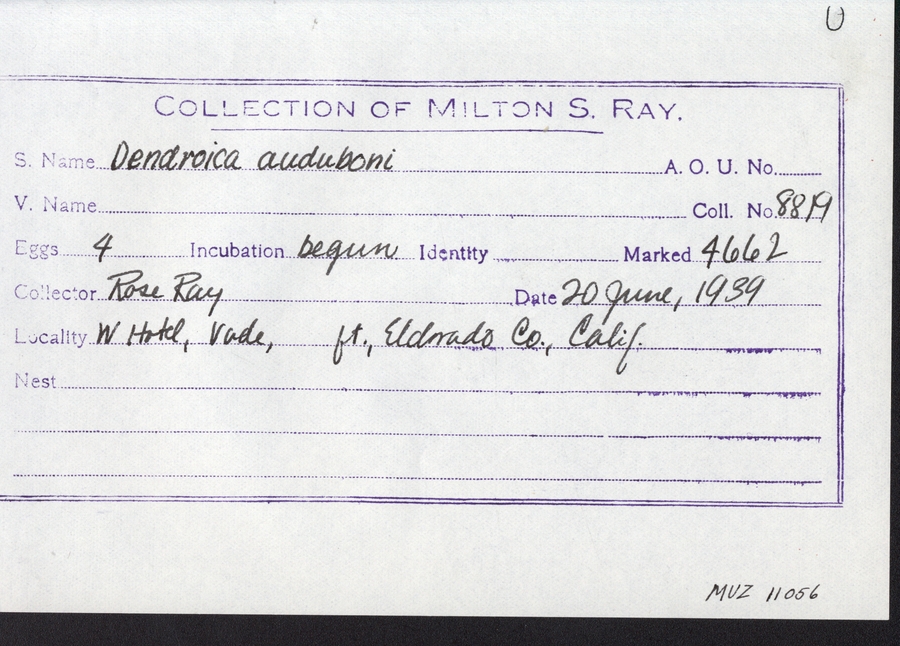 U
COLLECTION OF MILTON S. RAY.
S. Name Dendroica auduboni A. O. U. No.
V. Name Coll. No. 8819
Eggs 4 Incubation begun Identity Marked 4662
Collector Rose Ray Date 20 June, 1939
Locality W Hotel, Vade, ft., Eldorado Co., Calif.
Nest
MVZ 11056